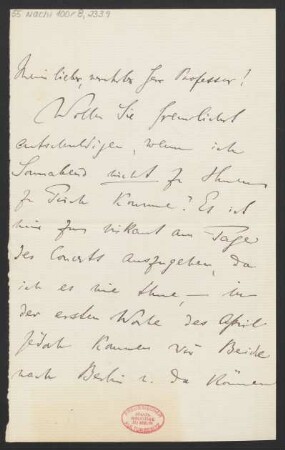 55 Nachl 100 / B, 2339
Mein lieber, verehrter Herr Professor!
Wollen Sie freundlichst
entschuldigen, wenn ich
Sonnabend nicht zu Ihnen
zu Tisch komme? Es ist
mir zu riskant am Tage
des Concerts auszugehen, da
ich es nie thue, – in
der ersten Woche des April
jedoch kommen wir Beide
nach Berlin u. da können